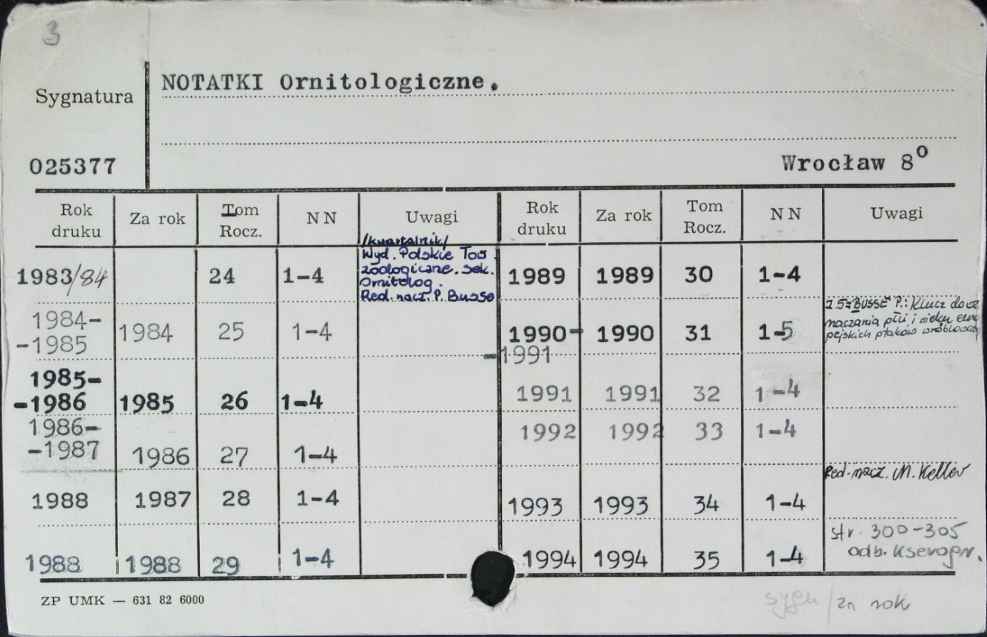 3
Sygnatura
NOTATKI Ornitologiczne.
025377
Wrocław 8°
Rok druku Za rok Tom Rocz. N N Uwagi Rok druku Za rok Tom Rocz. N N Uwagi
1983/84 24 1-4 /kwartalnik/ Wyd. Polskie Tow. zoologiczne. sek. Ornitolog. Red. nacz. P. Busse 1989 1989 30 1-4
1984-
-1985 1984 25 1-4 1990-
-1991 1990 31 1-5 z. 5: Busse P.: Klucz do oznaczania płci i wieku europejskich ptaków wróblowatych
1985-
-1986 1985 26 1-4 1991 1991 32 1-4
1986-
-1987 1986 27 1-4 1992 1992 33 1-4
1988 1987 28 1-4 1993 1993 34 1-4 Red. nacz. M. Keller
1988 1988 29 1-4 1994 1994 35 1-4 str. 300-305 odb. kserogr.
ZP UMK — 631 82 6000
sygn / za rok